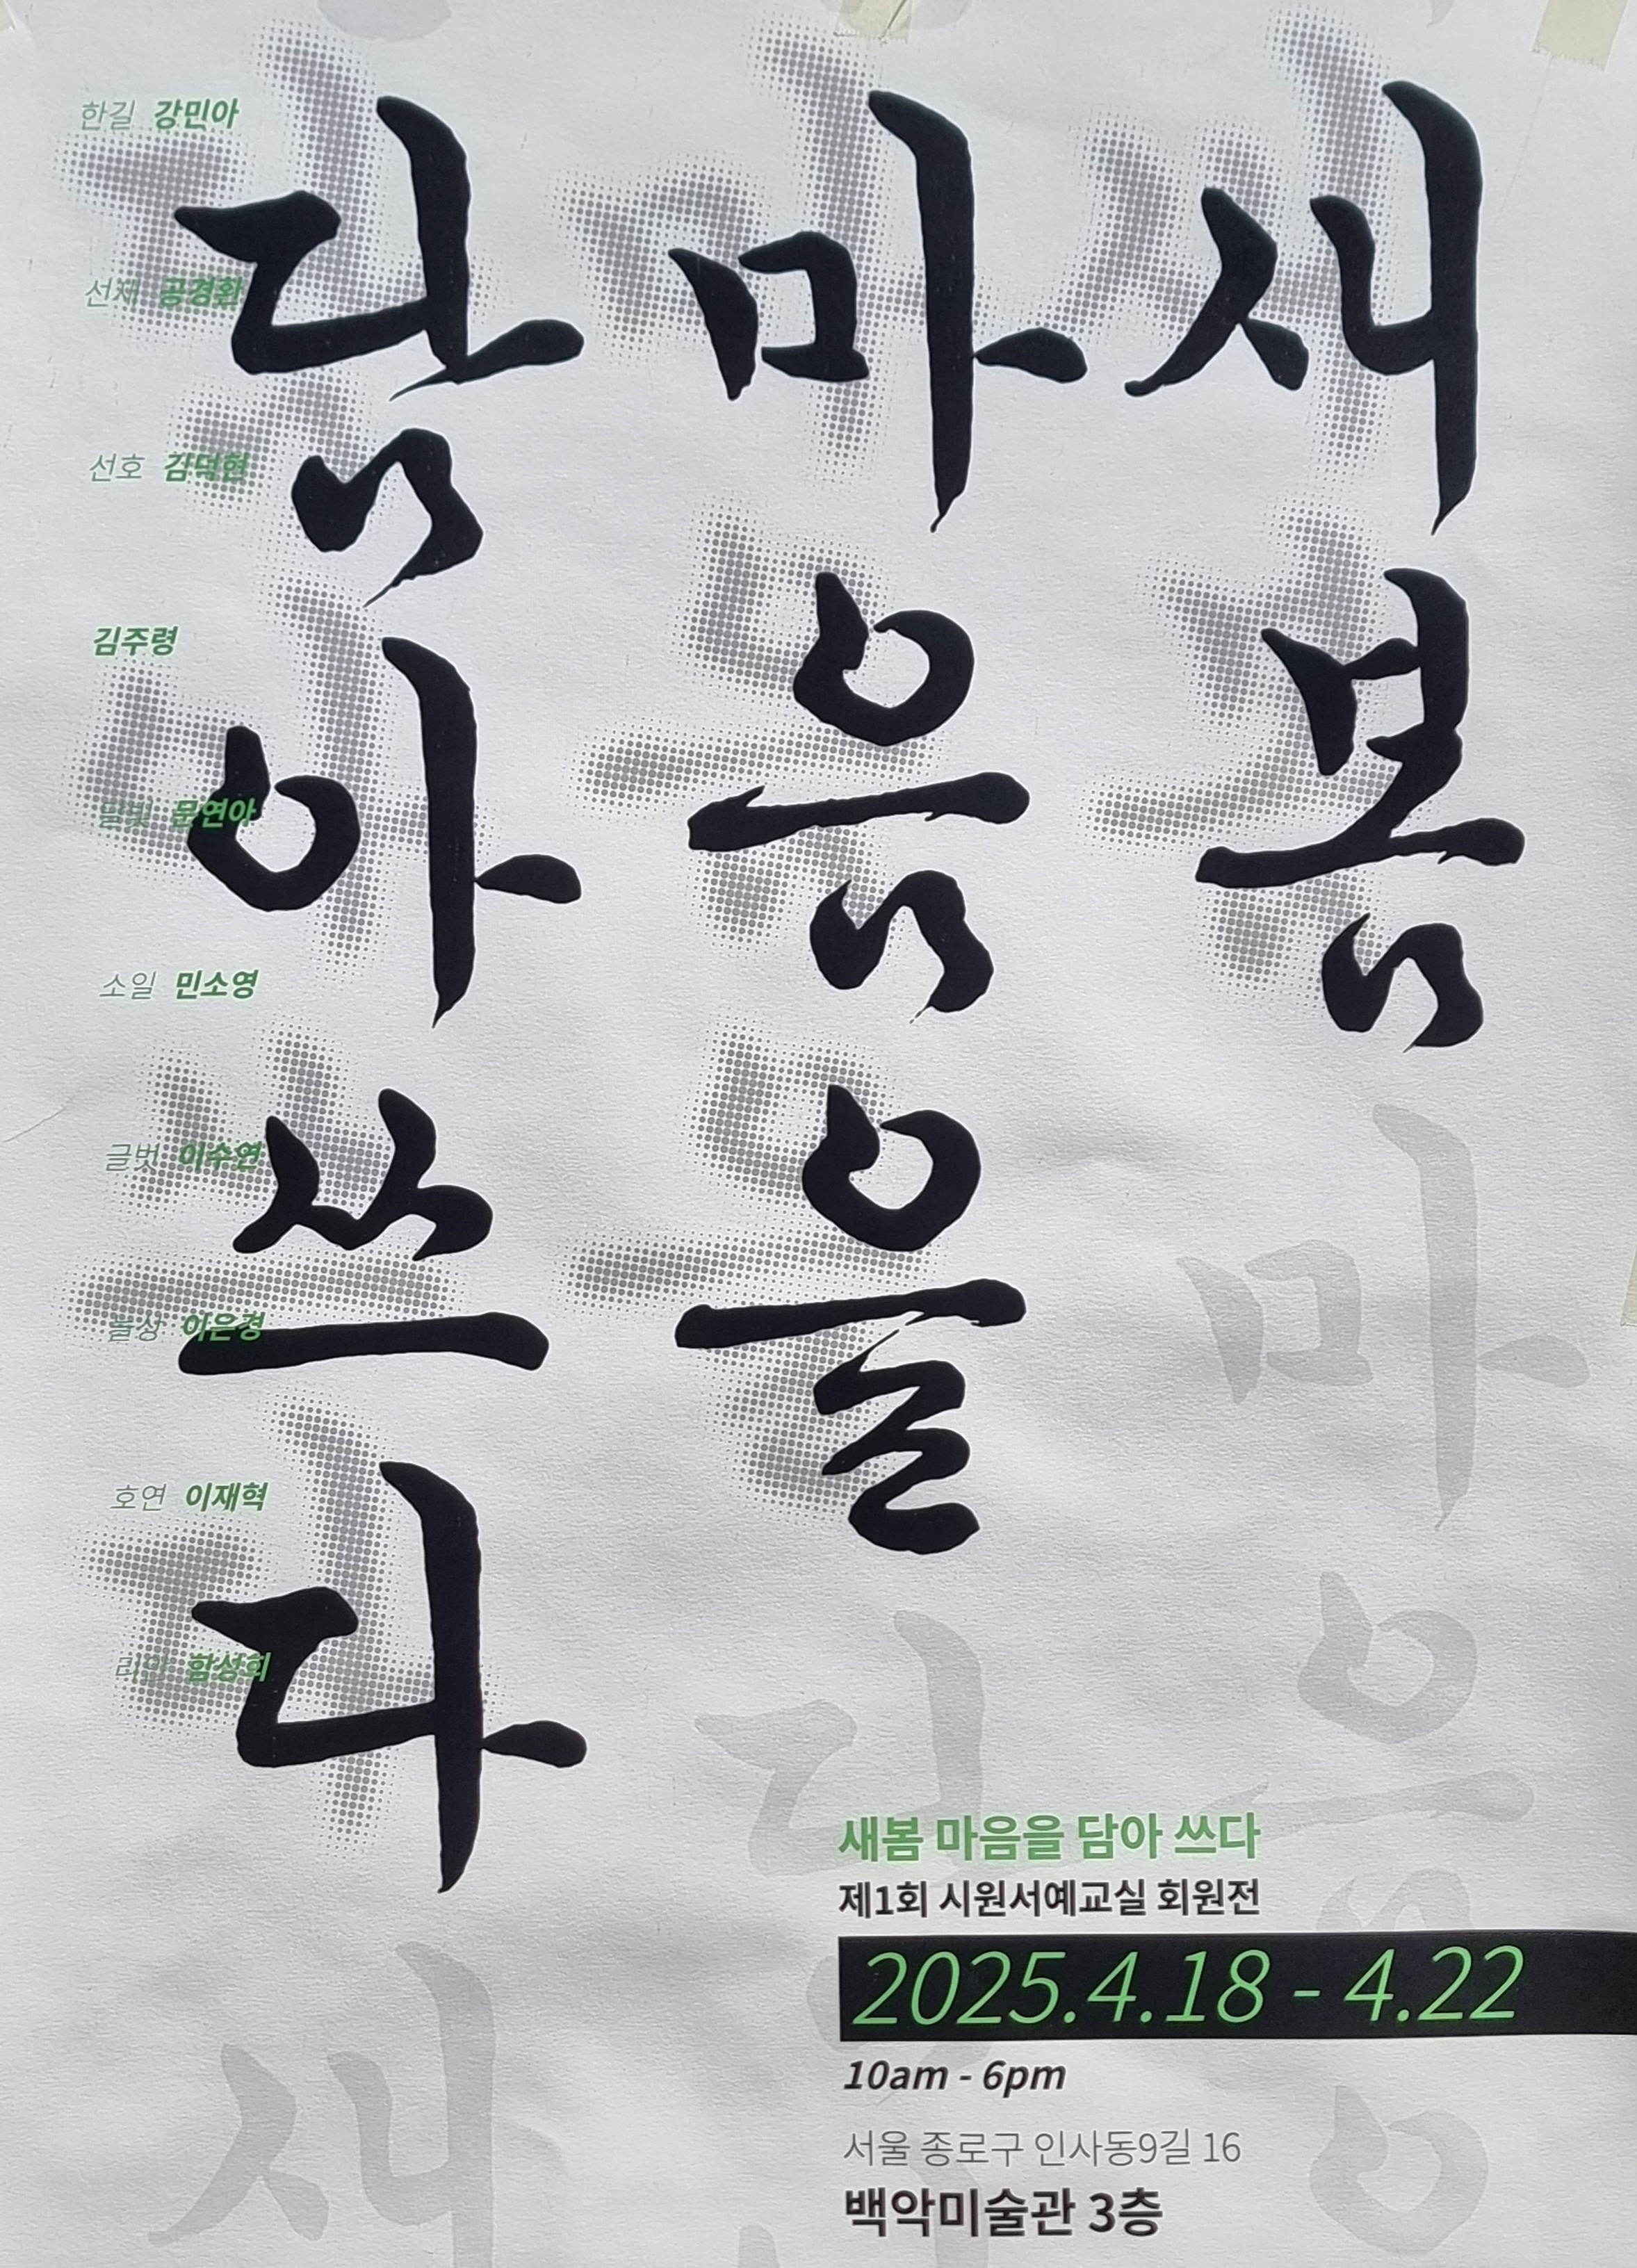 새봄
마음을
담아쓰다
한길 강민아
선재 공경환
선호 김덕현
김주령
달빛 문연아
소일 민소영
글벗 이수연
늘상 이은경
호연 이재혁
함성희
새봄 마음을 담아 쓰다
제1회 시원서예교실 회원전
2025.4.18 - 4.22
10am - 6pm
서울 종로구 인사동9길 16
백악미술관 3층